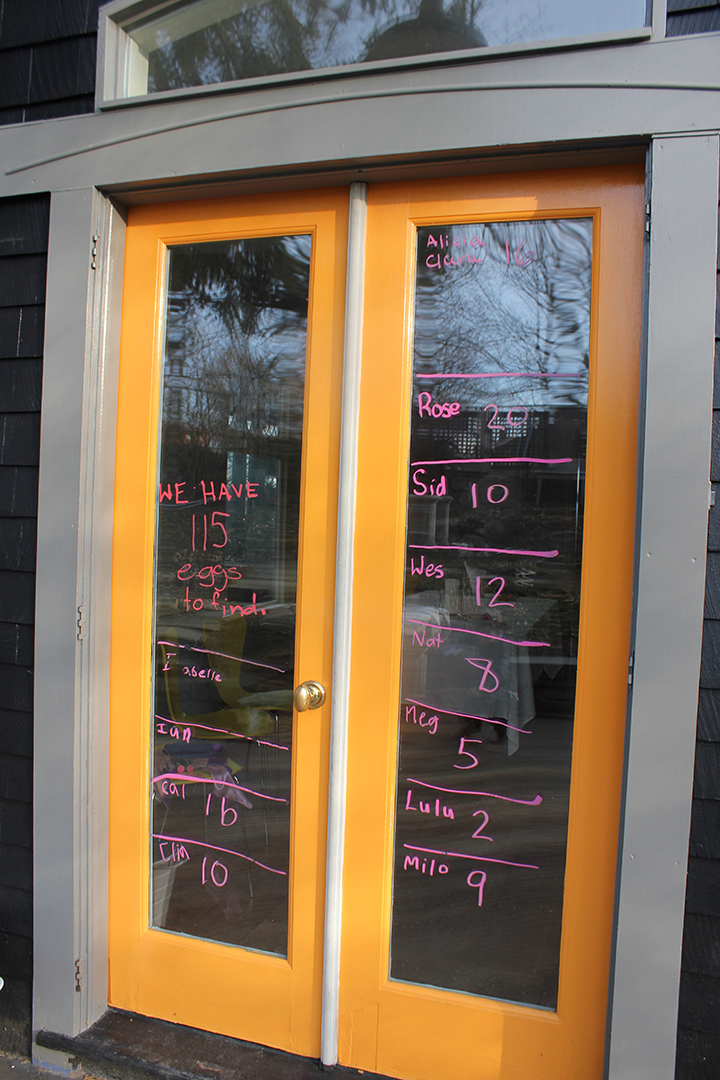 WE HAVE
115
eggs
to find.
I abelle
Ian
cal 16
10
Alicia
Clara 16
Rose 20
Sid 10
Wes 12
Nat 8
Meg 5
Lulu 2
Milo 9